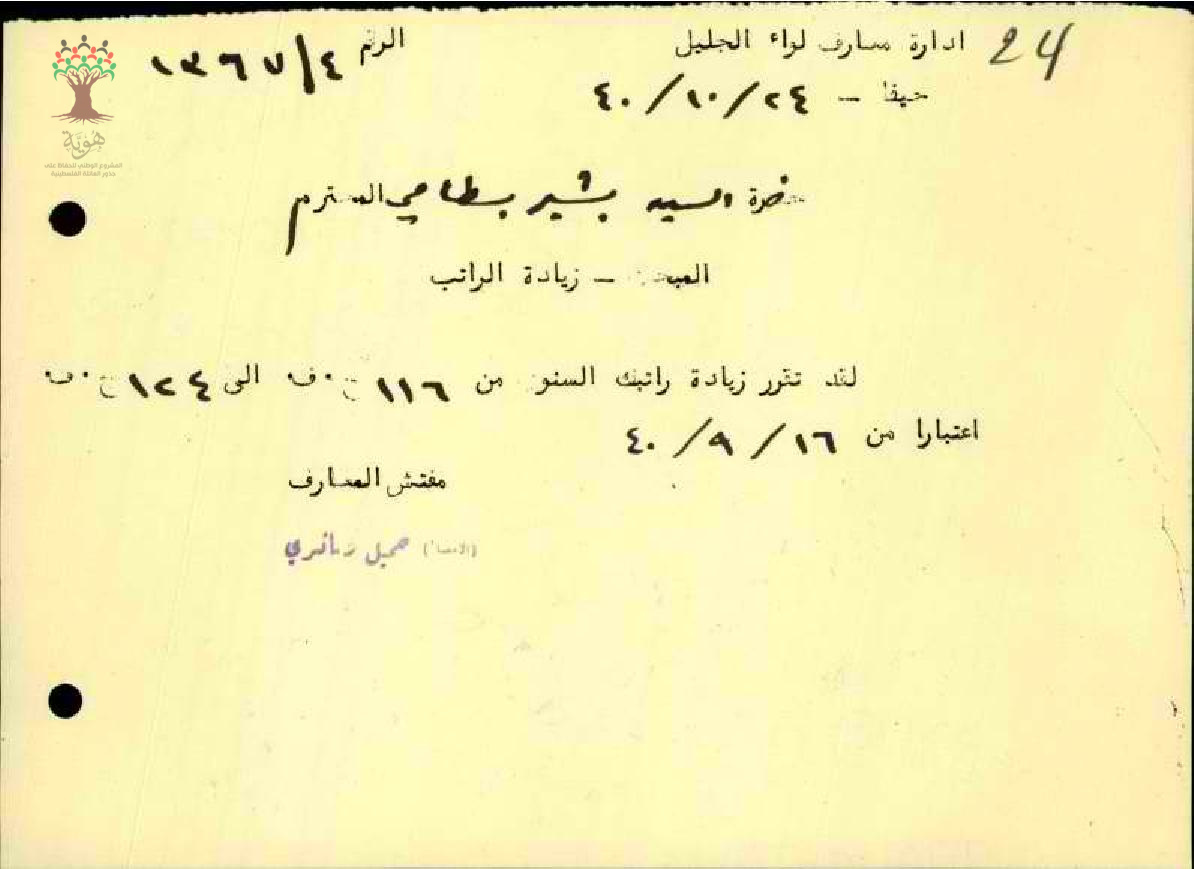 24
ادارة معارف لواء الجليل
الرقم ١٣٦٧/٤
حيفا - ٤٠/١٠/٢٤
حضرة السيد بشير بسطامي المحترم
المبحث - زيادة الراتب
لقد تقرر زيادة راتبك السنوي من ١١٦ ج٠ف٠ الى ١٢٤ ج٠ف٠
اعتبارا من ٤٠/٩/١٦
مفتش المعارف
(الامضاء)
هُوِيَّة
المشروع الوطني للحفاظ على
جذور العائلة الفلسطينية